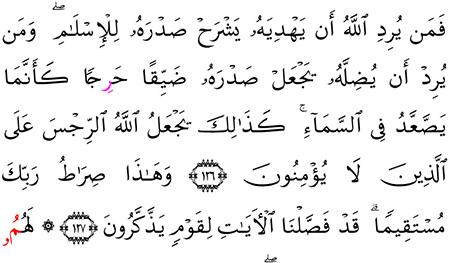 فَمَن يُرِدِ ٱللَّهُ أَن يَهْدِيَهُۥ يَشْرَحْ صَدْرَهُۥ لِلْإِسْلَـٰمِ ۖ وَمَن
يُرِدْ أَن يُضِلَّهُۥ يَجْعَلْ صَدْرَهُۥ ضَيِّقًا حَرِجًا كَأَنَّمَا
يَصَّعَّدُ فِى ٱلسَّمَآءِ ۚ كَذَٰلِكَ يَجْعَلُ ٱللَّهُ ٱلرِّجْسَ عَلَى
ٱلَّذِينَ لَا يُؤْمِنُونَ ١٢٦ وَهَـٰذَا صِرَٰطُ رَبِّكَ
مُسْتَقِيمًا ۗ قَدْ فَصَّلْنَا ٱلْأَيَـٰتِ لِقَوْمٍ يَذَّكَّرُونَ ١٢٧ ۞ لَهُمُۥ
ۖ